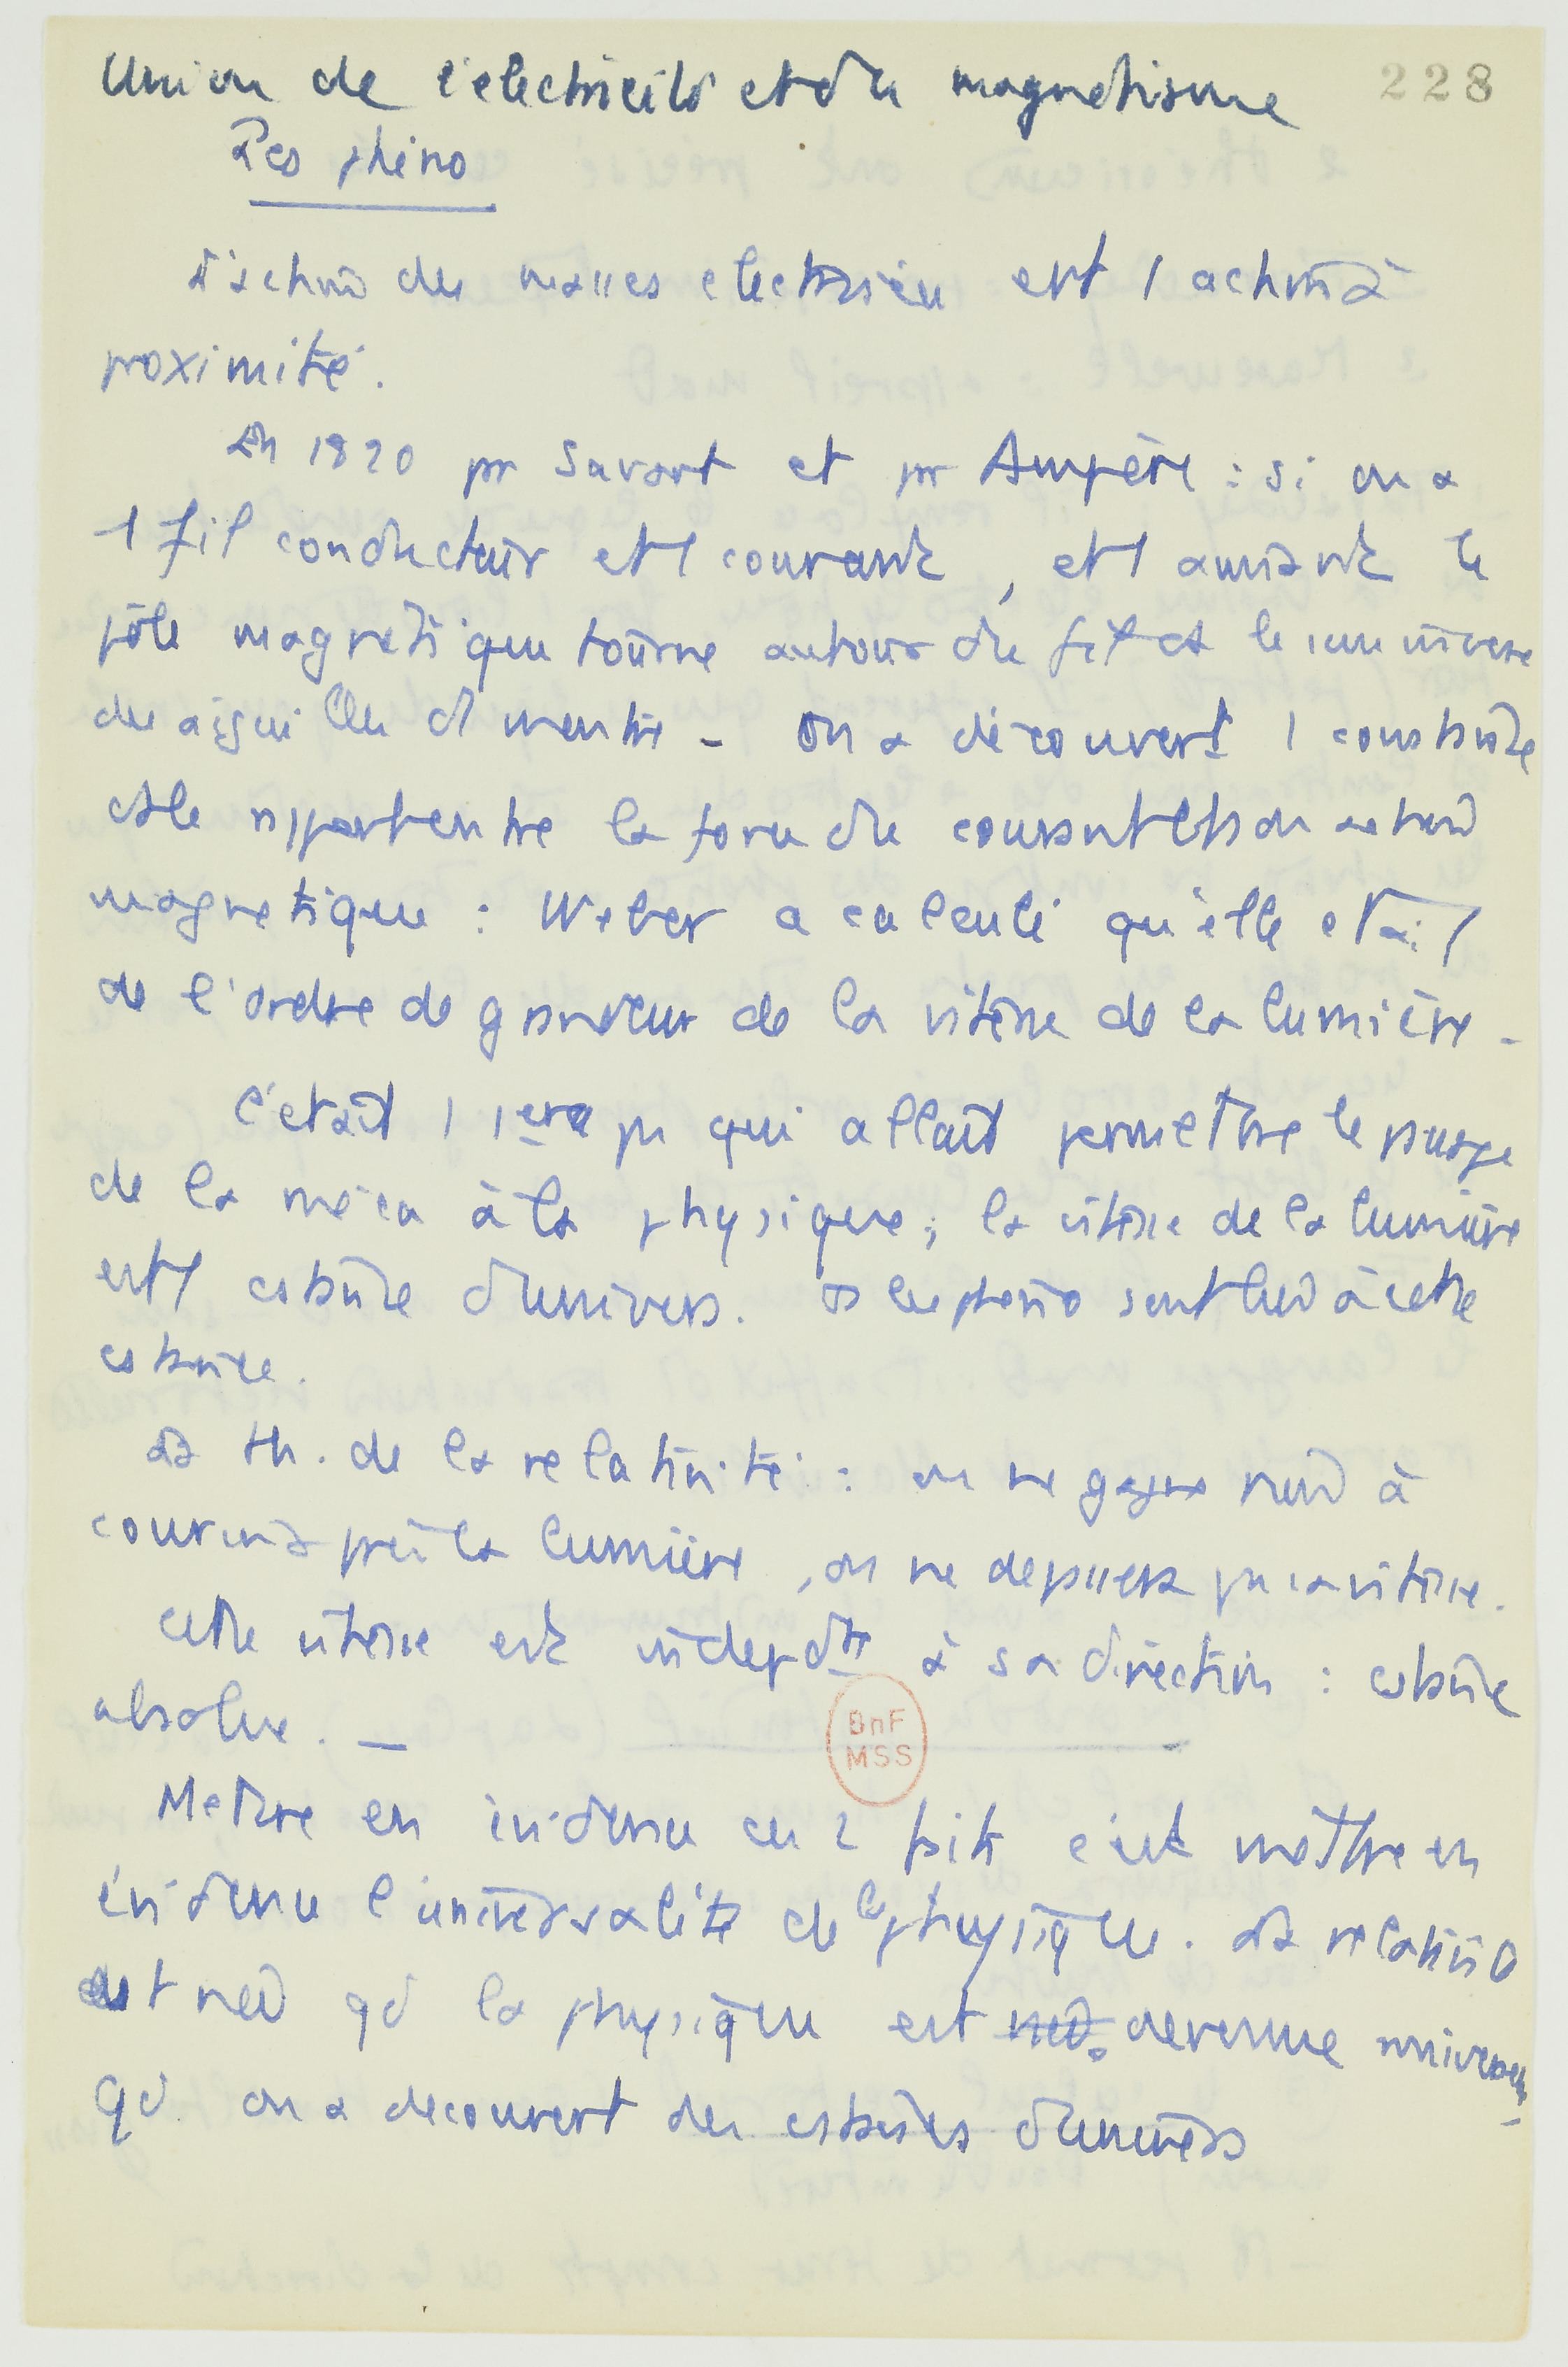 Union de l'electricité et du magnetisme
228
Les phéno
L'action des masses electriques est 1 action à
proximité.
En 1820 pr Savart et pr Ampère : si on a
1 fil conducteur et 1 courant, et 1 aimant le
pôle magnetique tourne autour du fil et le sens inverse
des aiguilles d 1 montre - On a découvert 1 constante
est le rapport entre la force du courant et son action
magnetique : Weber a calculé qu'elle était
de l'ordre de grandeur de la vitesse de la lumière -
C'était 1 1ere qui allait permettre le passage
de la méca à la physique ; la vitesse de la lumière
est 1 cstante d'univers. les phéno sont liés à cette
cstante.
La th. de la relativité : on ne gagne rien à
courir après la lumière, on ne depassera pas sa vitesse.
Cette vitesse est indepdte à sa direction : cstante
absolue. _
BnF
MSS
Mettre en évidence ces 2 faits c'est mettre en
évidence l'universalité de la physique. La relativité
est née qd la physique est née devenue universelle,
qd on a decouvert des cstantes d'univers